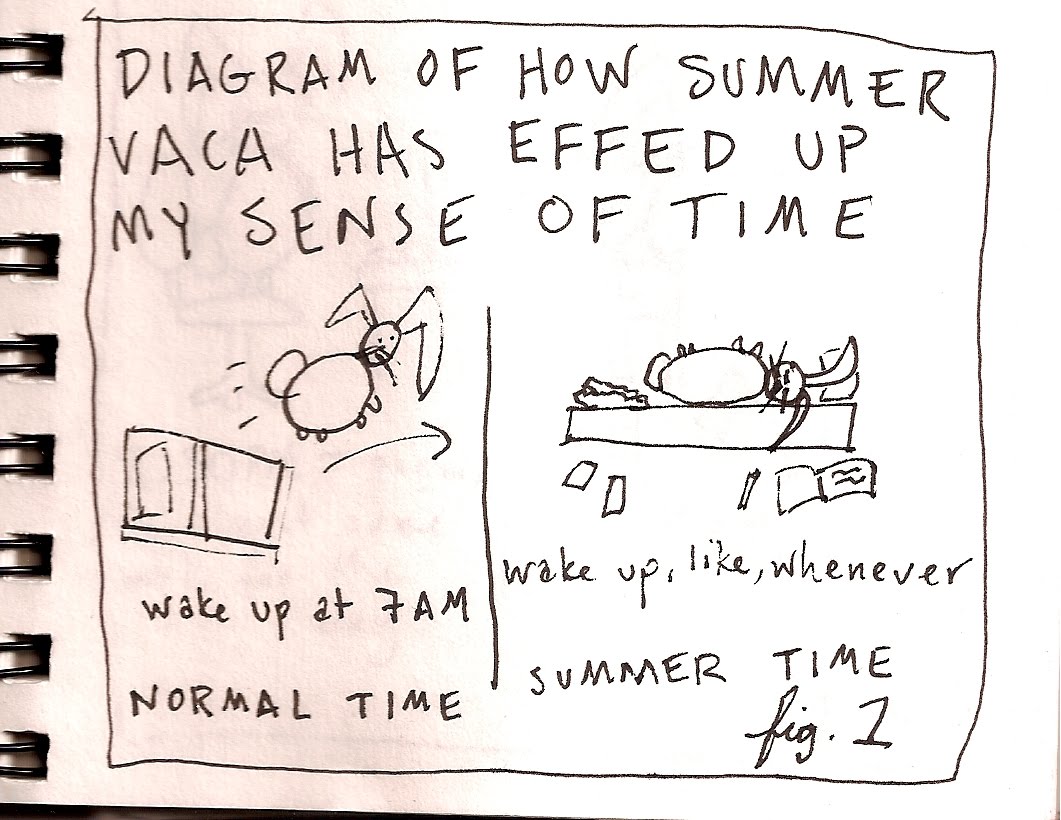 DIAGRAM OF HOW SUMMER
VACA HAS EFFED UP
MY SENSE OF TIME
wake up at 7AM
NORMAL TIME
wake up, like, whenever
SUMMER TIME
fig. 1